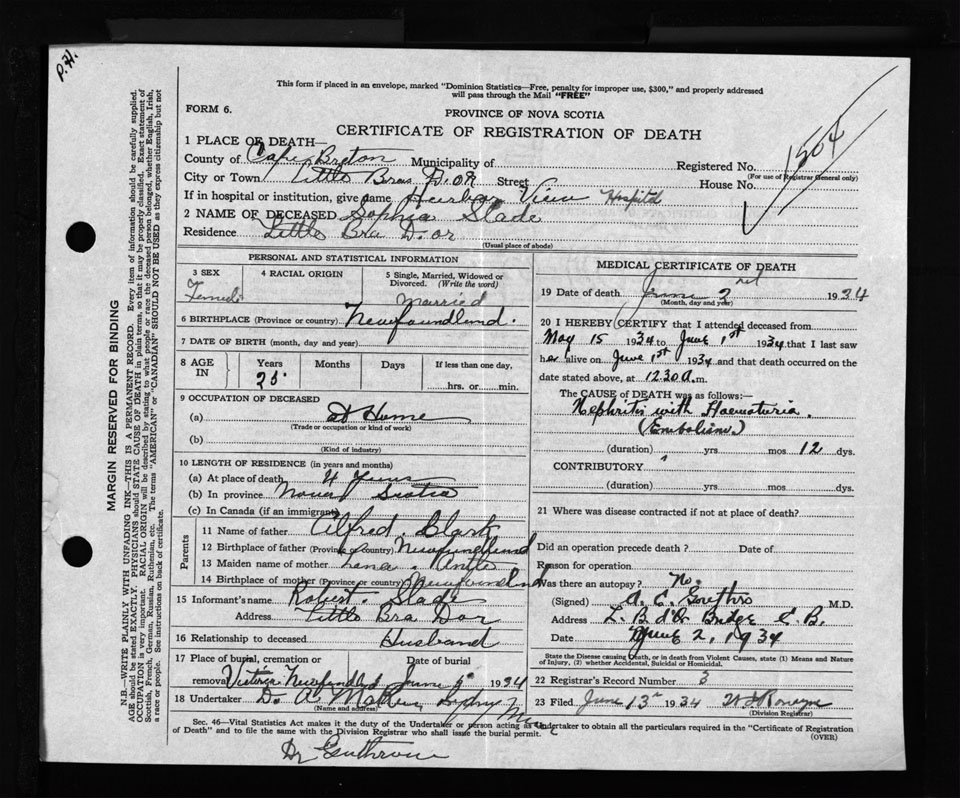 P.H.
This form if placed in an envelope, marked "Dominion Statistics—Free, penalty for improper use, $300," and properly addressed
will pass through the Mail "FREE"
FORM 6.
PROVINCE OF NOVA SCOTIA
CERTIFICATE OF REGISTRATION OF DEATH
1504
1 PLACE OF DEATH—
County of Cape Breton Municipality of Registered No.
(For use of Registrar General only)
City or Town Little Bras D.OR Street House No.
If in hospital or institution, give name Harbor View Hospital
2 NAME OF DECEASED Sophia Slade
Residence Little Bra D.or
(Usual place of abode)
PERSONAL AND STATISTICAL INFORMATION
3 SEX 4 RACIAL ORIGIN 5 Single, Married, Widowed or Divorced. (Write the word)
Female Married
6 BIRTHPLACE (Province or country) Newfoundland.
7 DATE OF BIRTH (month, day and year)
8 AGE IN Years Months Days If less than one day,
25 hrs. or min.
9 OCCUPATION OF DECEASED
(a) At Home
(Trade or occupation or kind of work)
(b)
(Kind of industry)
10 LENGTH OF RESIDENCE (in years and months)
(a) At place of death 4 years
(b) In province Nova Scotia
(c) In Canada (if an immigrant)
Parents
11 Name of father Alfred Clark
12 Birthplace of father (Province or country) Newfoundland
13 Maiden name of mother Lena
14 Birthplace of mother (Province or country) Newfoundland
15 Informant's name Robert Slade
Address Little Bra Dor
16 Relationship to deceased Husband
17 Place of burial, cremation or removal Date of burial
Victoria Newfoundland June 1934
18 Undertaker D. A. Sydney Mines
(Name and address)
MEDICAL CERTIFICATE OF DEATH
19 Date of death June 2nd 1934
(Month, day and year)
20 I HEREBY CERTIFY that I attended deceased from
May 15 1934 to June 1st 1934 that I last saw
her alive on June 1st 1934 and that death occurred on the
date stated above, at 12.30 A.m.
The CAUSE OF DEATH was as follows:—
Nephritis with Haematuria.
(Embolism)
(duration) yrs mos 12 dys.
CONTRIBUTORY
(duration) yrs. mos. dys.
21 Where was disease contracted if not at place of death?
Did an operation precede death? Date of
Reason for operation
Was there an autopsy? No.
(Signed) A. C. Gouthro M.D.
Address L. B d'O Bridge C. B.
Date June 2, 1934
State the Disease causing Death, or in death from Violent Causes, state (1) Means and Nature
of Injury, (2) whether Accidental, Suicidal or Homicidal.
22 Registrar's Record Number 3
23 Filed June 13 1934
(Division Registrar)
Sec. 46—Vital Statistics Act makes it the duty of the Undertaker or person acting as Undertaker to obtain all the particulars required in the "Certificate of Registration
of Death" and to file the same with the Division Registrar who shall issue the burial permit. (OVER)
Dr
MARGIN RESERVED FOR BINDING
N.B.—WRITE PLAINLY WITH UNFADING INK—THIS IS A PERMANENT RECORD. Every item of information should be carefully supplied.
AGE should be stated EXACTLY. PHYSICIANS should STATE CAUSE OF DEATH in plain terms, so that it may be properly classified. Exact statement of
OCCUPATION is very important. RACIAL ORIGIN will be described by stating to what people or race the deceased person belonged, whether English, Irish,
Scottish, French, German, Russian, Ruthenian, etc. The terms "AMERICAN" or "CANADIAN" SHOULD NOT BE USED as they express citizenship but not
a race or people. See instructions on back of certificate.